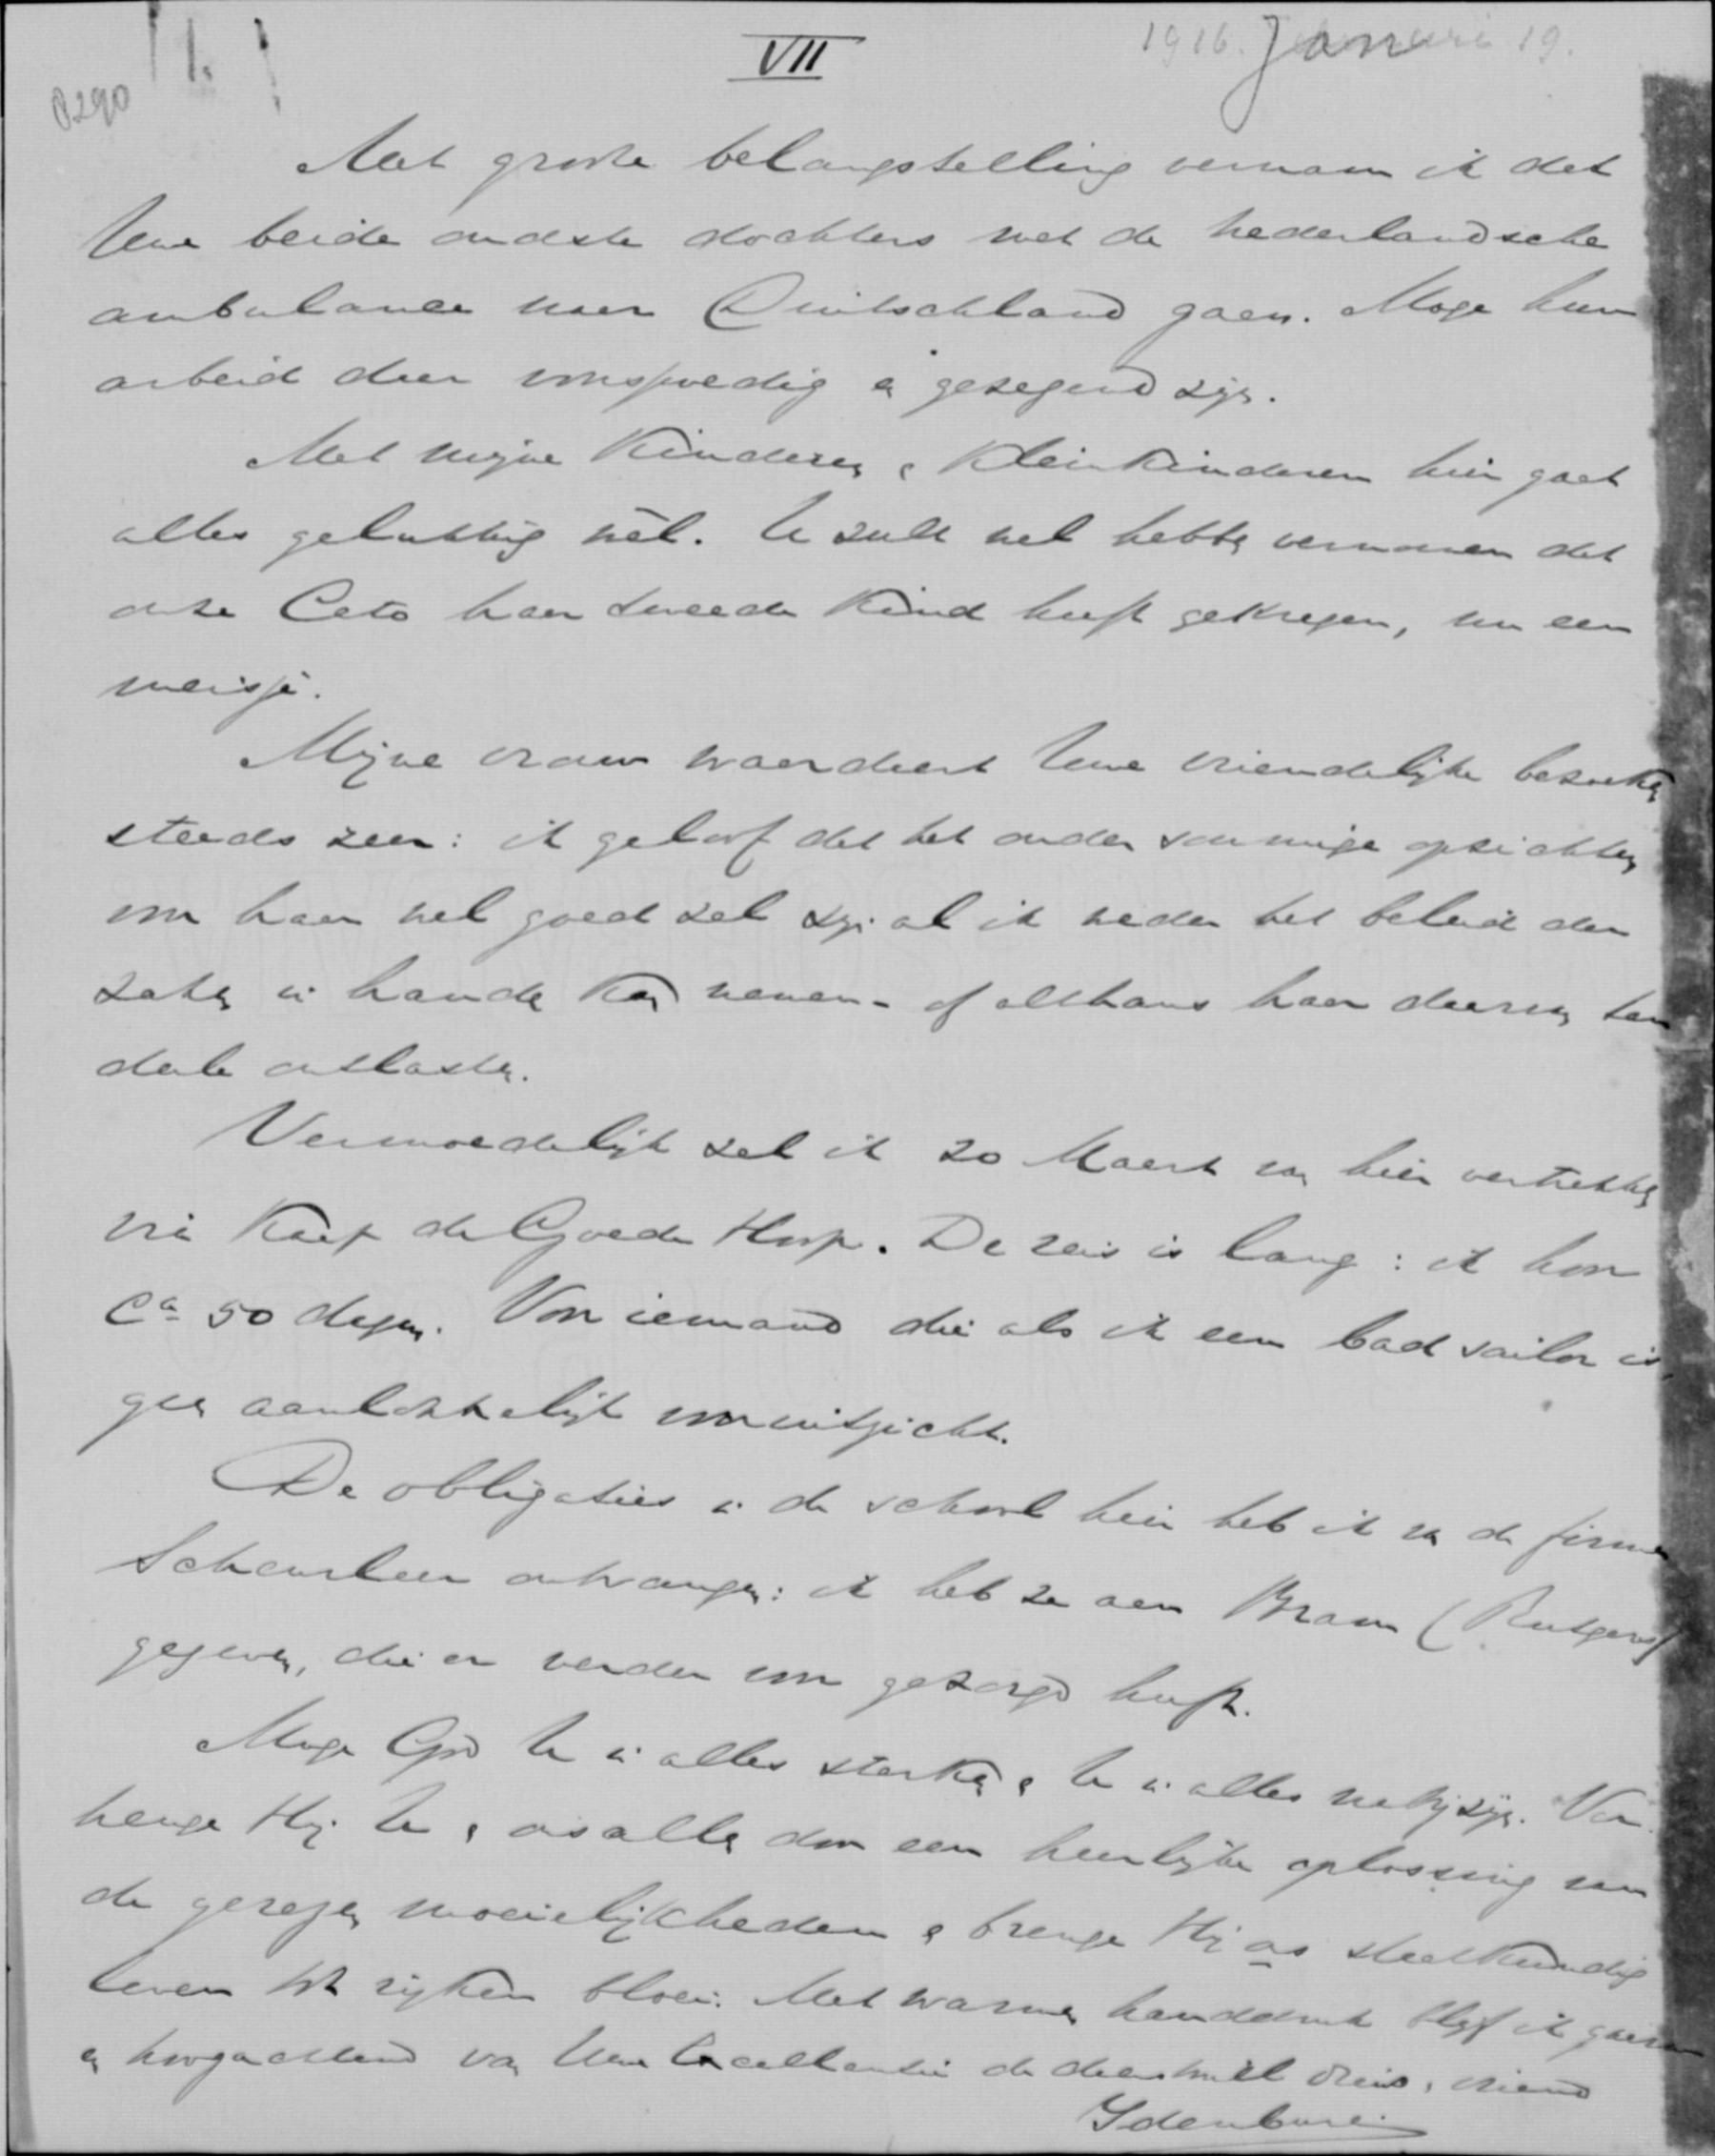 VII
1916. Januari 19.
8290
Met groote belangstelling vernam ik dat
Uwe beide oudste dochters met de Nederlandsche
ambulance naar Duitschland gaan. Moge hun
arbeid daar voorspoedig en gezegend zijn.
Met mijne Kinderen en Kleinkinderen hier gaat
alles gelukkig wèl. U zult wel hebben vernomen dat
onze Ceto haar tweede Kind heeft gekregen, nu een
meisje.
Mijne vrouw waardeert Uwe vriendelijke bezoeken
steeds zeer: ik geloof dat het onder sommige opzichten
voor haar wel goed zal zijn als ik weder het beleid der
zaken in handen Kan nemen - of althans haar daarvan ten
deele ontlasten.
Vermoedelijk zal ik 20 Maart van hier vertrekken
via Kaap de Goede Hoop. De reis is lang: ik hoor
Ca 50 dagen. Voor iemand die als ik een bad sailor is,
geen aanlokkelijk vooruitzicht.
De obligaties in de school hier heb ik van de firma
Scheurleer ontvangen: ik heb ze aan Bram (Rutgers)
gegeven, die er verder voor gezorgd heeft.
Moge God U in alles sterken en U in alles nabij zijn. Ver-
heuge Hij U en ons allen door een heerlijke oplossing van
de gerezen moeielijkheden en brenge Hij ons staatkundig
leven tot rijken bloei. Met warmen handdruk blijf ik gaarne
en hoogachtend van Uwe Excellentie de dienstwill. dien. en vriend
Idenburg